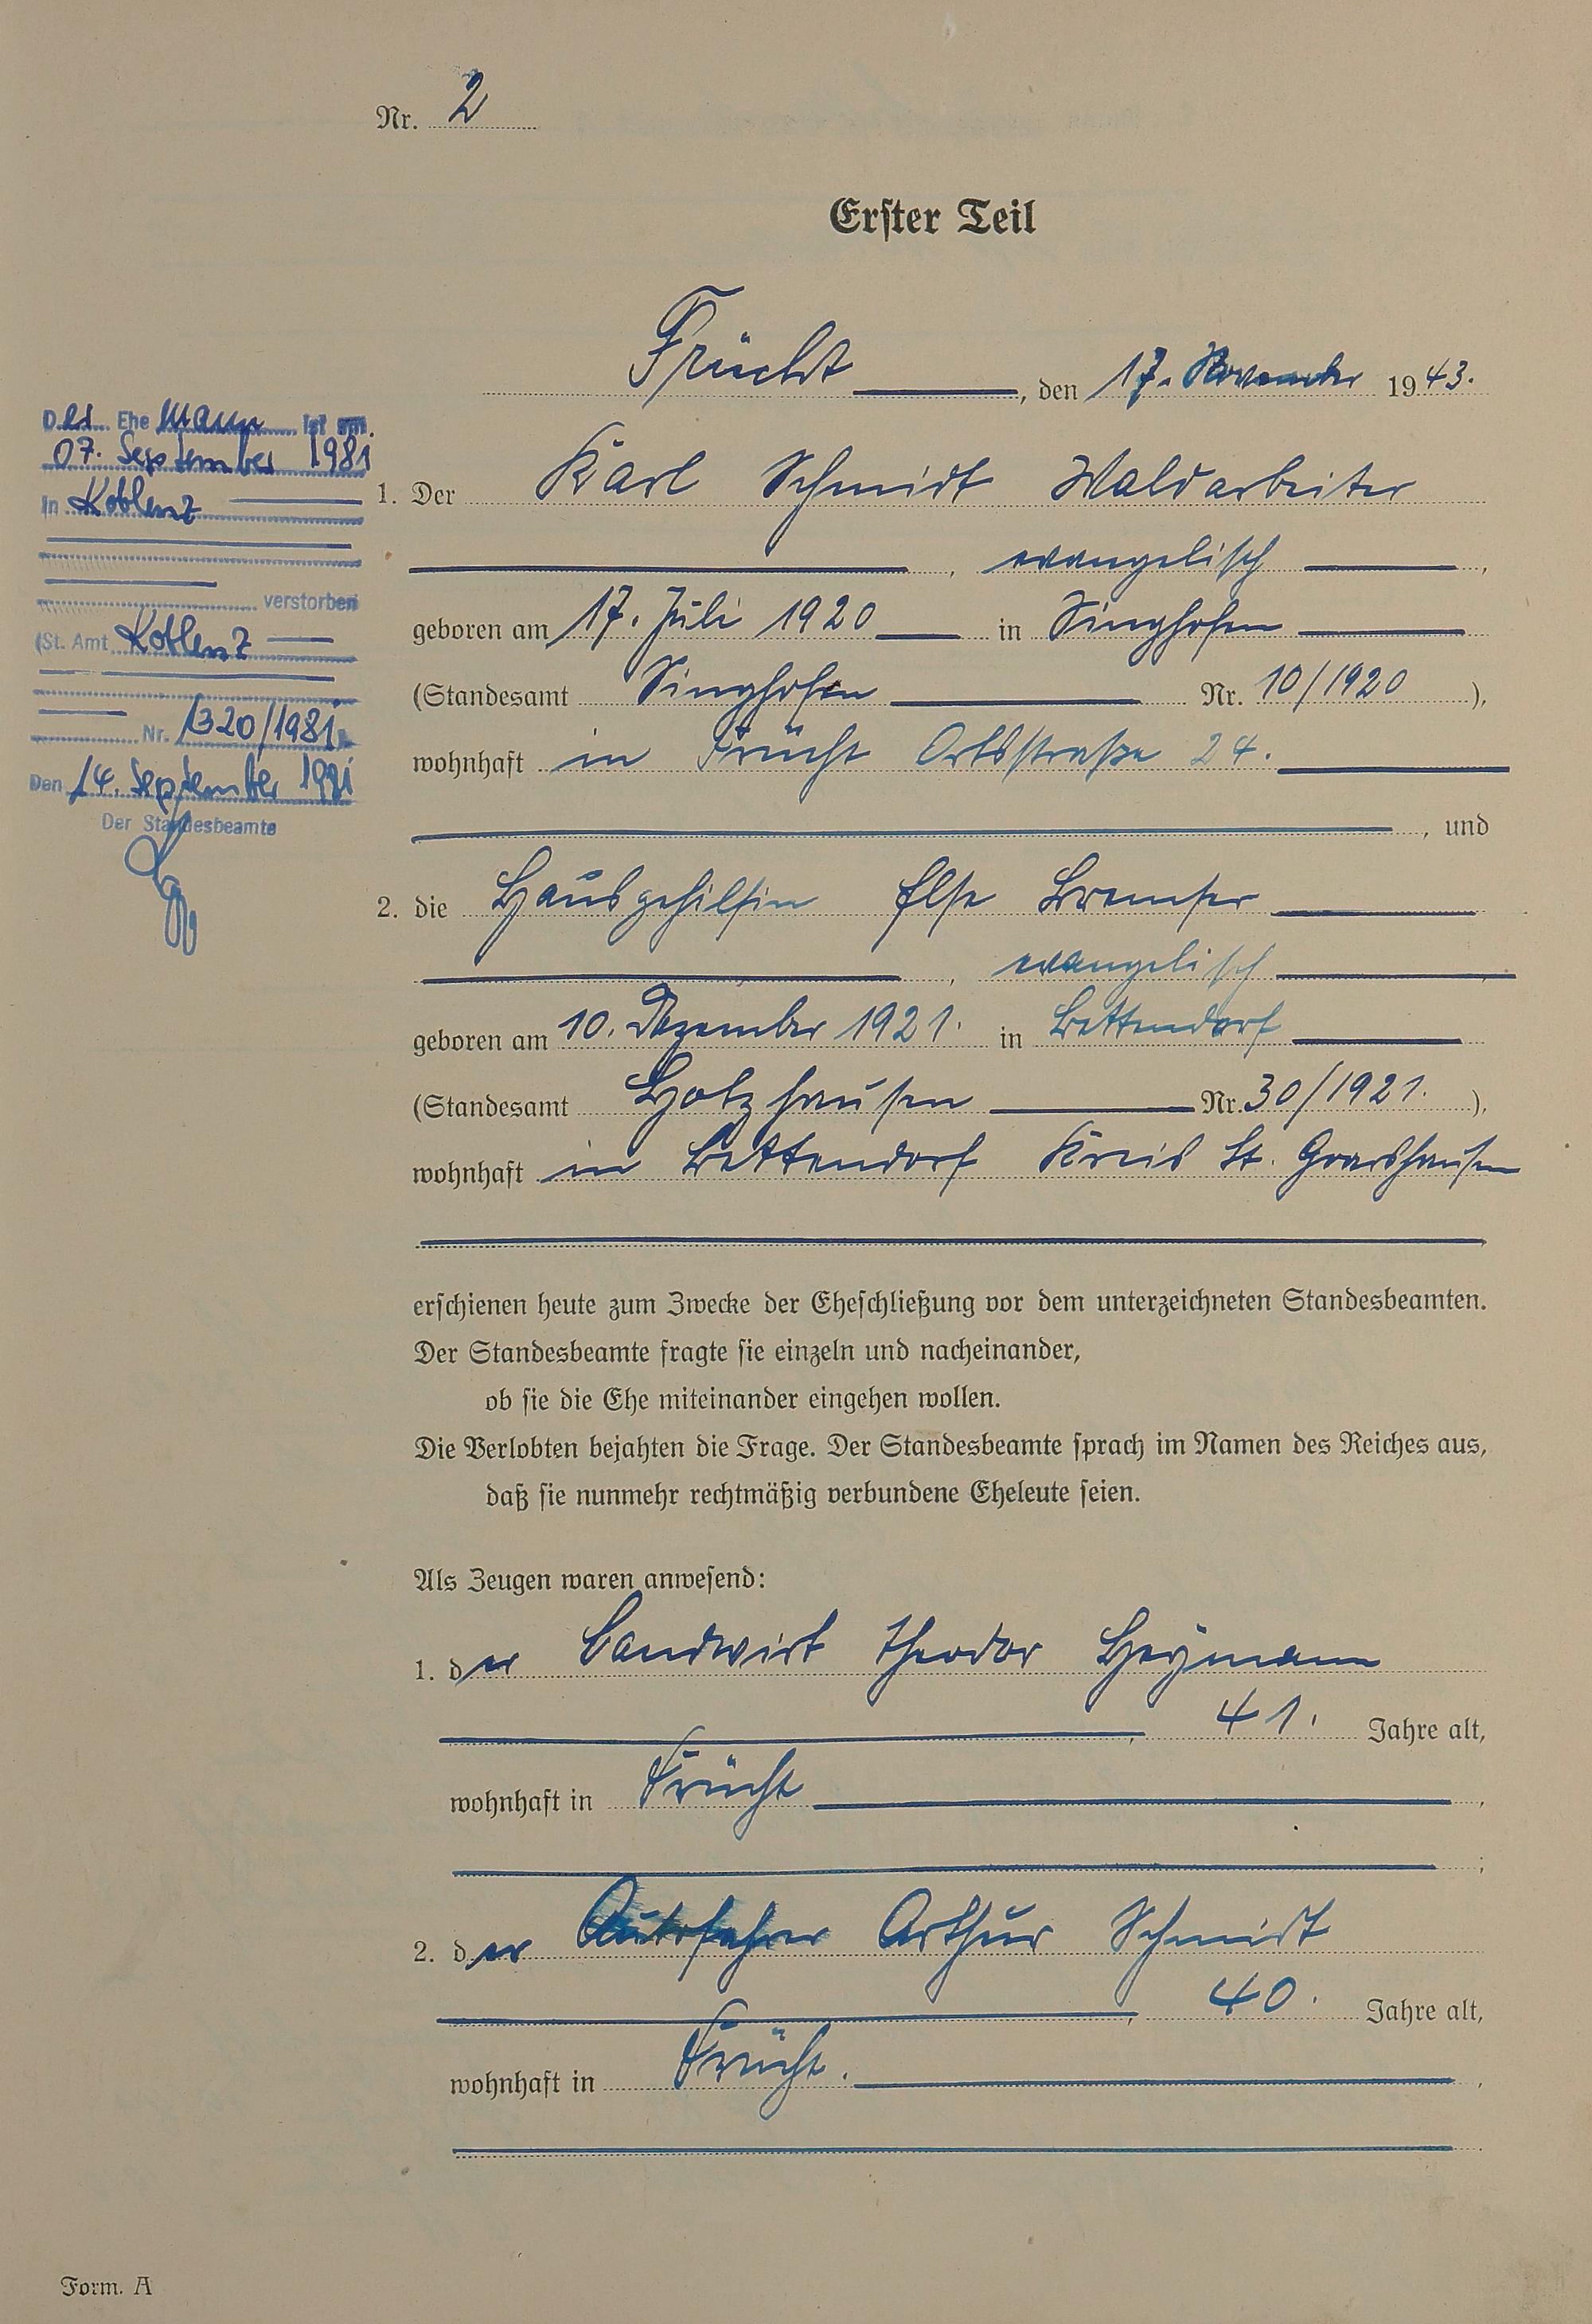 Nr. 2
Erster Teil
Frücht, den 17. November 1943.
1. Der Karl Schmidt Waldarbeiter
, evangelisch,
geboren am 17. Juli 1920 in Singhofen
(Standesamt Singhofen Nr. 10/1920 ),
wohnhaft in Frücht Ortsstraße 24.
, und
2. die Hausgehilfin Else Bremser
, evangelisch
geboren am 10. Dezember 1921. in Bettendorf
(Standesamt Holzhausen Nr. 30/1921. ),
wohnhaft in Bettendorf Kreis St. Goarshausen
erschienen heute zum Zwecke der Eheschließung vor dem unterzeichneten Standesbeamten.
Der Standesbeamte fragte sie einzeln und nacheinander,
ob sie die Ehe miteinander eingehen wollen.
Die Verlobten bejahten die Frage. Der Standesbeamte sprach im Namen des Reiches aus,
daß sie nunmehr rechtmäßig verbundene Eheleute seien.
Als Zeugen waren anwesend:
1. der Landwirt Theodor Heymann
, 41. Jahre alt,
wohnhaft in Frücht,
;
2. der Autofahrer Arthur Schmidt
, 40. Jahre alt,
wohnhaft in Frücht.,
Der Ehe Mann ist am
07. September 1981
in Koblenz
verstorben
(St. Amt Koblenz
Nr. 1320/1981
Den 14. September 1981
Der Standesbeamte
Form. A